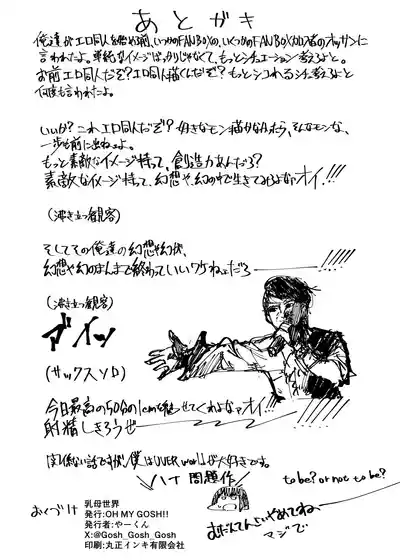 あとがき
俺達がエロ同人を始める前、いつかのFANBOXの、いくつかのFANBOX加入者のオッサンに
言われたよ。単純なイメージばっかりじゃなくて、もっとシチュエーション考えろよと
お前エロ同人だぞ?エロ同人描くんだぞ?もっとシコれるシチュ考えろよと
何度も言われたよ。
いいか?これエロ同人だぞ?好きなモン描かなかったら、そんなモンな、
一歩も前に出ねぇよ。
もっと素敵なイメージ持って、創造力あんだろ?
素敵なイメージ持って、幻想や、幻の中で生きてみろよなァオイ!
(沸き立つ観客)
そしてその俺達の幻想や幻が、
幻想や幻のまんまで終わっていいワケねぇだろ――!!!!
(沸き立つ観客)
(サックスソロ)
今日最高の50分の1cmを魅せてくれよなァオイ!!!
射精しきろうぜ
関係ない話ですが、僕はUVERworldが大好きです。
問題作
to be? or not to be?
マジで
おくづけ
乳母世界
発行:OH MY GOSH!!
発行者:やーくん
X:@Gosh_Gosh_Gosh
印刷:丸正インキ有限会社